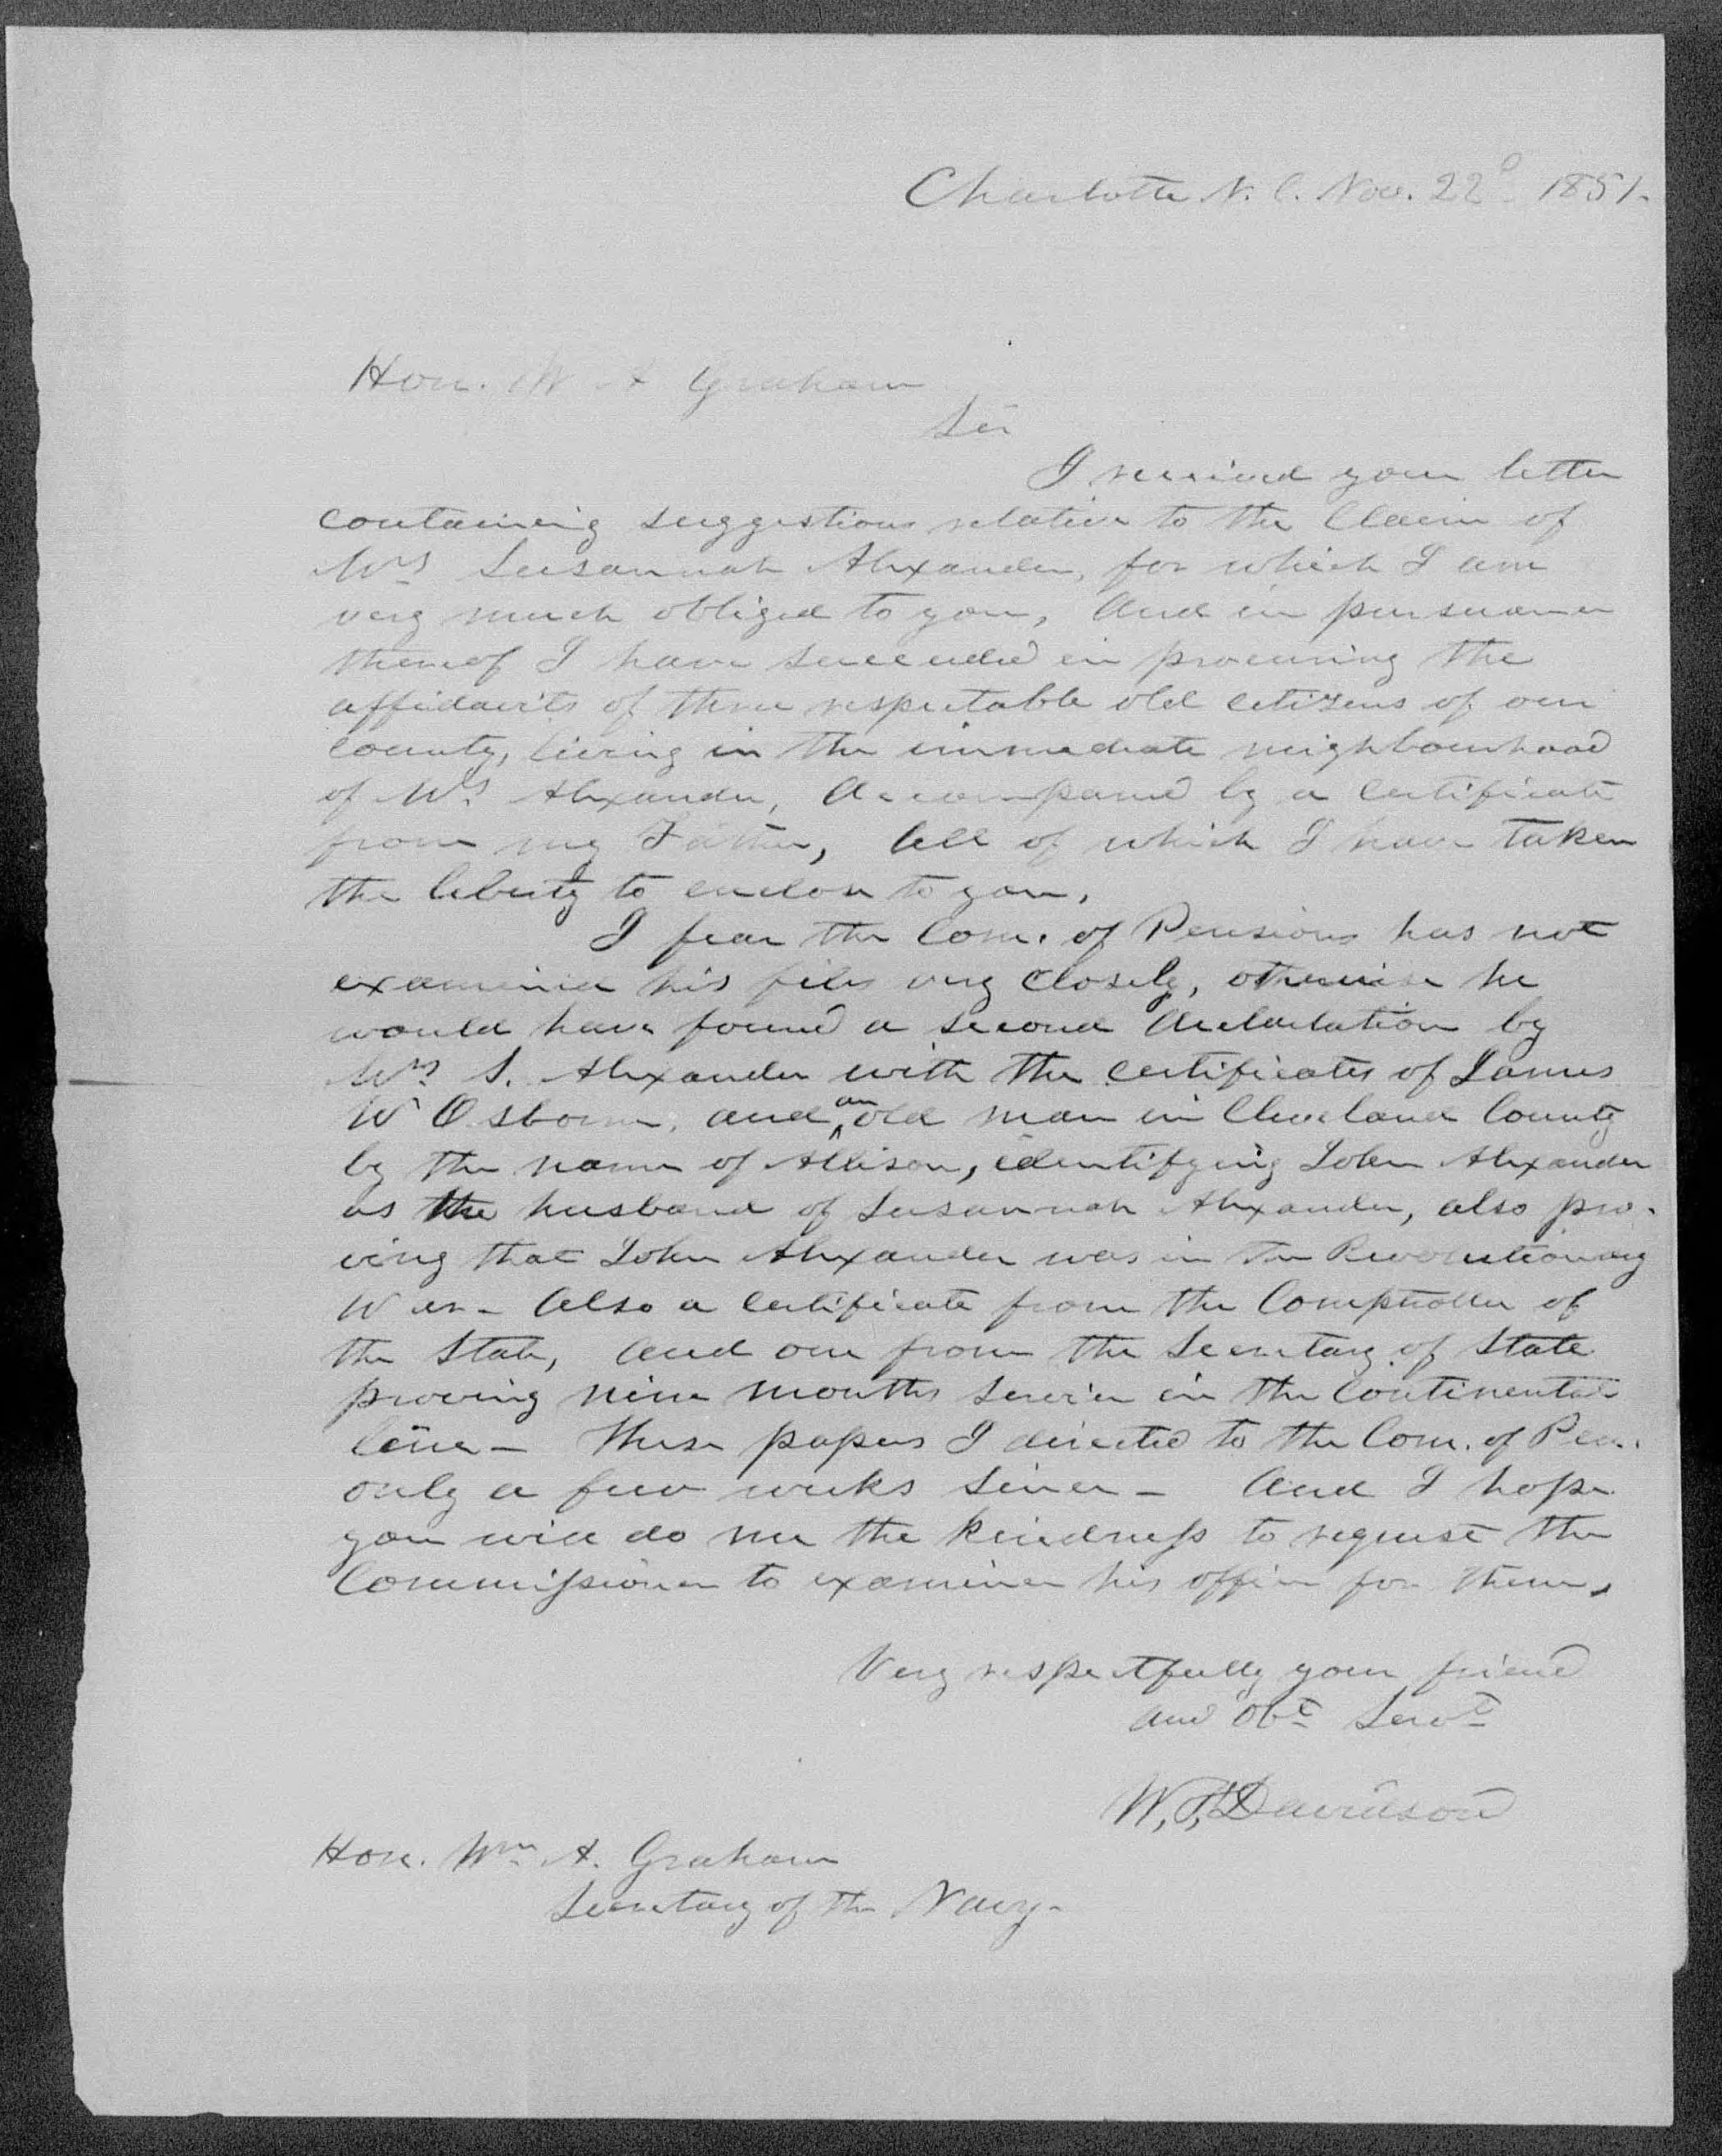 Charlotte N. C. Nov. 22d 1851.
Hon. W A Graham
Sir
I received your letter
containing suggestions relative to the Claim of
Mrs Susannah Alexander, for which I am
very much obliged to you, And in pursuance
thereof I have succeeded in procuring the
affidavits of three respectable old citizens of our
County, living in the immediate neighbourhood
of Mrs Alexander, Accompanied by a Certificate
from my Father, All of which I have taken
the liberty to enclose to you.
I fear the Com. of Pensions has not
examined his files very closely, otherwise he
would have found a second declartation by
Mrs S. Alexander with the certificates of James
W Osborne, and an old man in Cleveland County
by the name of Allison, identifying John Alexander
as the husband of Susannah Alexander, also pro-
ving that John Alexander was in the Revolutionary
War - Also a Certificate from the Comptroller of
the State, And one from the Secretary of State
proving nine months service in the Continental
line - These papers I directed to the Com. of Pen.
only a few weeks since - And I hope
you will do me the kindness to request the
Commissioner to examine his office for them.
Very respectfully your friend
and Obt Servt
W. F. Davidson
Hon. Wm A. Graham
Secretary of the Navy -